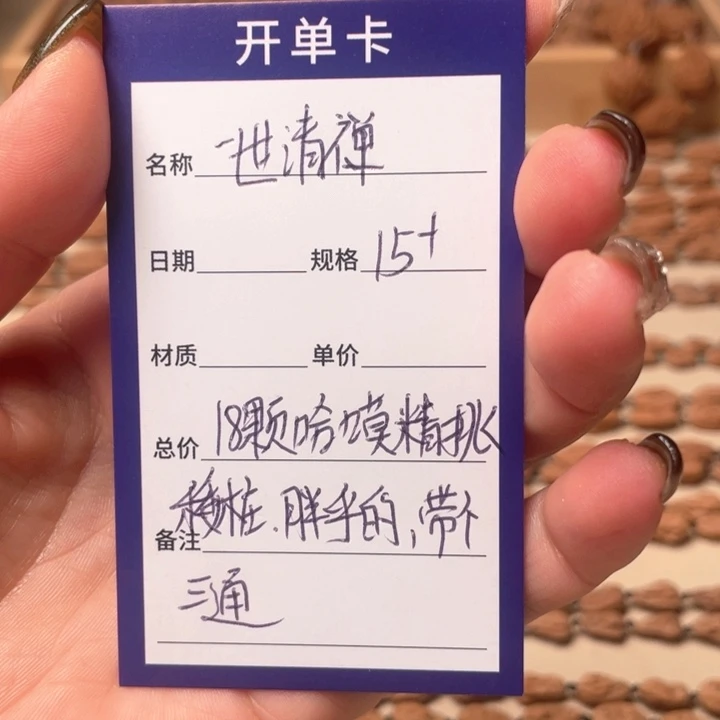 开单卡
名称 世清禅
日期 规格 15+
材质 单价
总价 18颗哈馍精挑
备注 矮桩.胖乎的,带个
三通